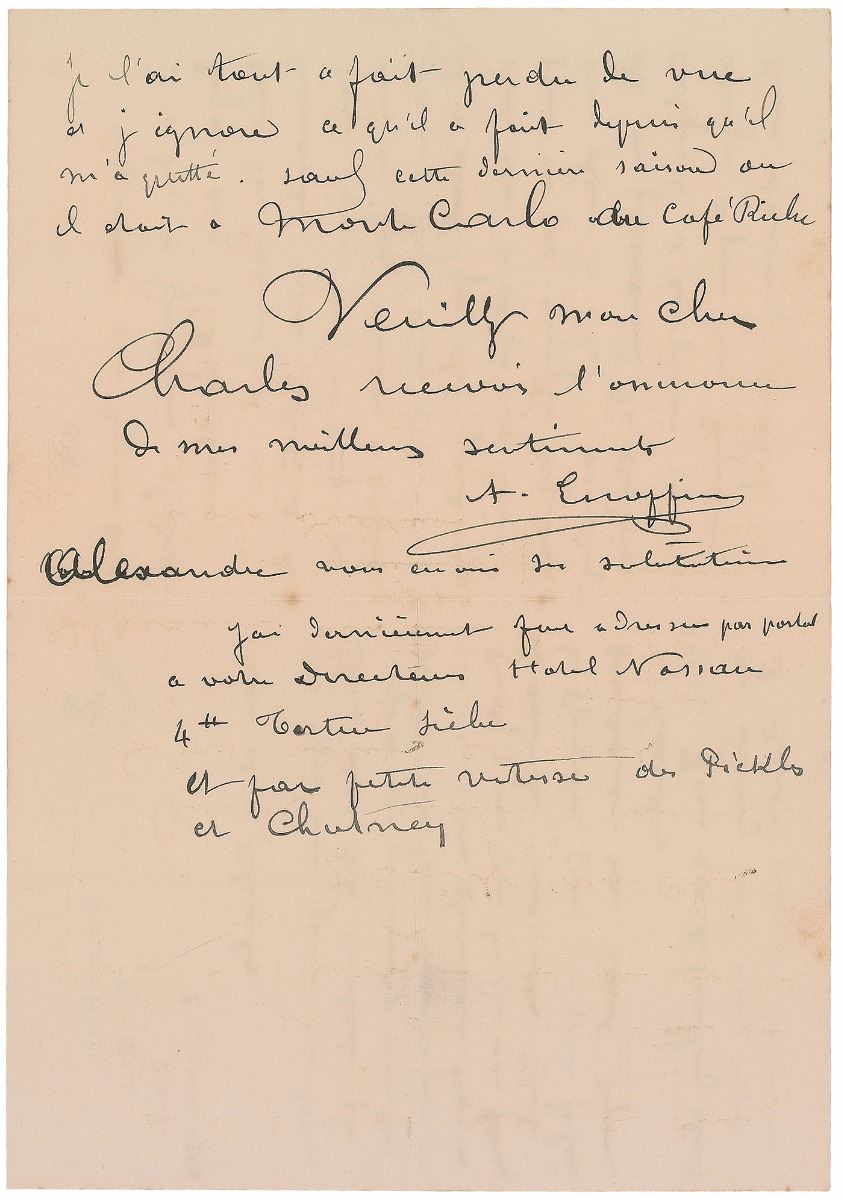 je l'ai tout a fait perdu de vue
et j ignore ce qu'il a fait depuis qu'il
m'a quitté. sauf cette dernière saison ou
il etait a Monte Carlo au Café Riche
Veuilly mon cher
Charles recevoir l'assurance
de mes meilleurs sentiments
A.
Alexandre vous envoie ses salutations
J'ai dernièrement fait adresser par postal
a votre Directeur Hotel Nassau
4 tt Tortue sèche
et par petite vitesse des Pickles
et Chutney